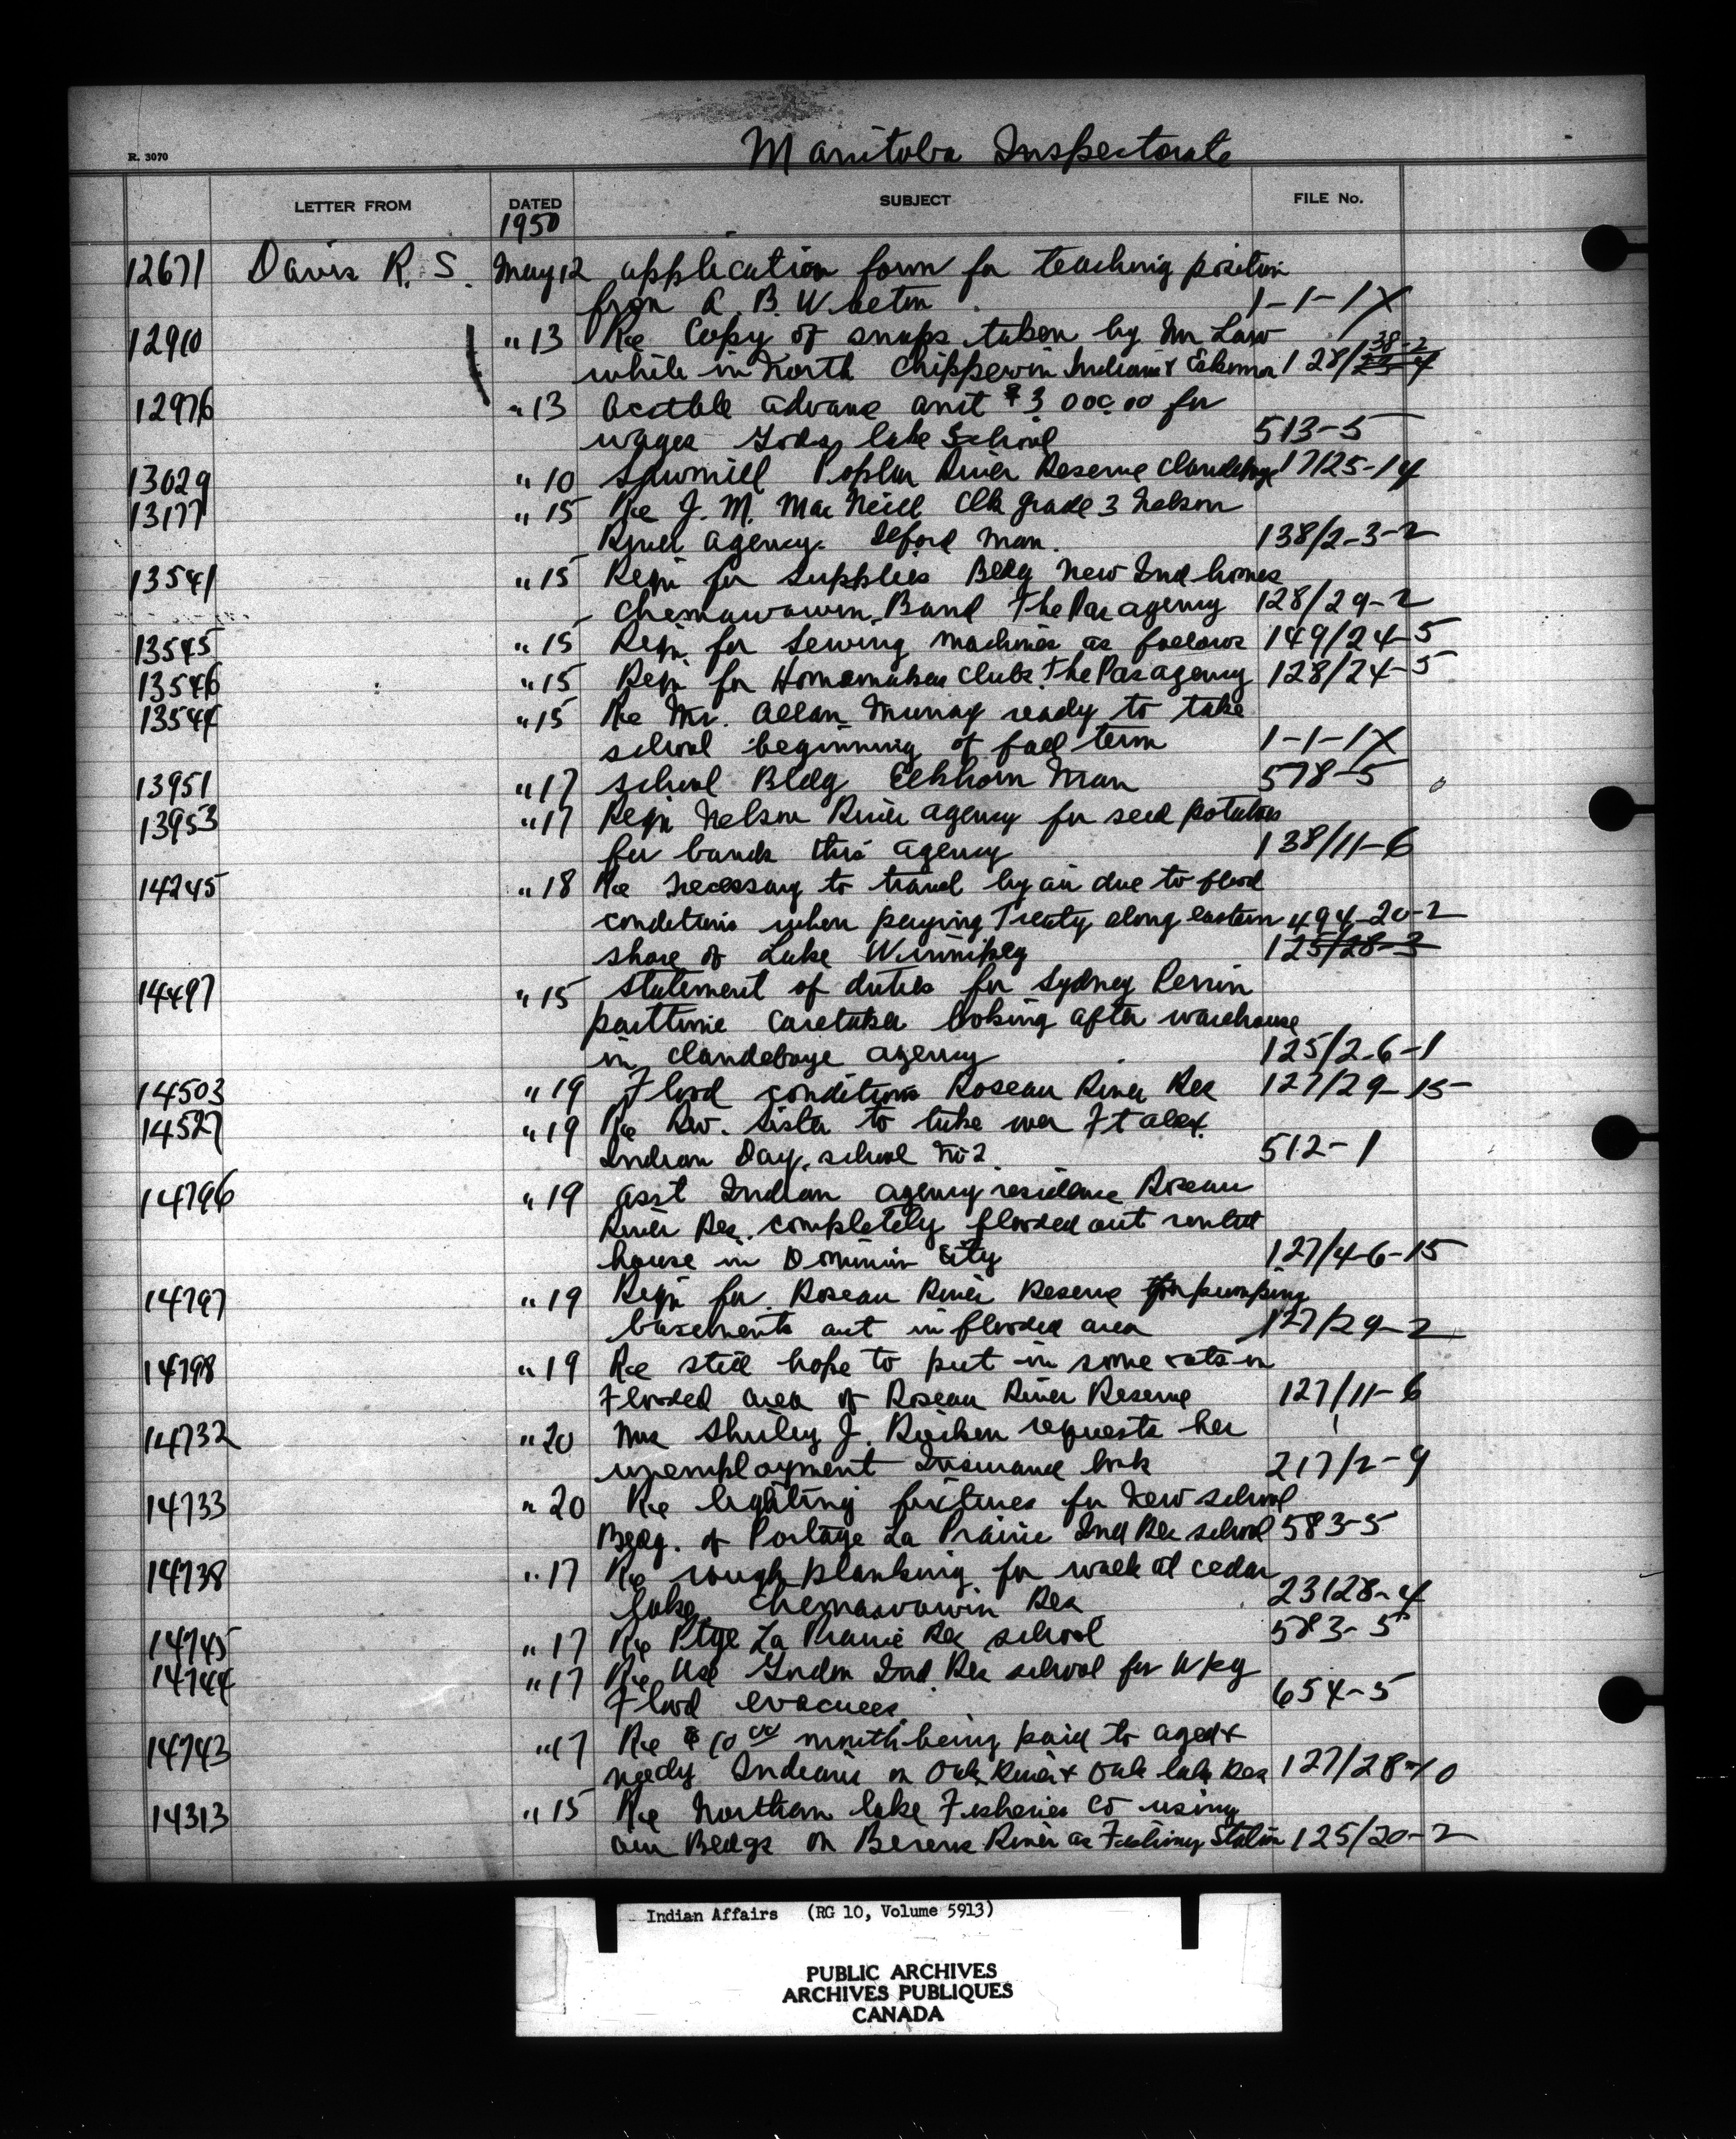 Manitoba Inspectorate
R. 3070
LETTER FROM DATED SUBJECT FILE No.
1950
12671 Davis R. S. May 12 application form for teaching position
from A. B. W 1-1-1X
12910 " 13 Re Copy of snaps taken by Mr Law 38-2
while in North Chippewin Indians & Eskimo 128/23-4
12976 " 13 acctble advance amt $3 000.00 for
wages Gods lake School 513-5
13029 " 10 Sawmill Poplar River Reserve Clandeboye 17125-14
13177 " 15 Re J. M. Mac Neill Clk grade 3 Nelson
River agency. Ilford Man. 138/2-3-2
13541 " 15 Reqn for supplies Bldg New Ind homes
Chemawawin Band The Pas agency 128/29-2
13545 " 15 Reqn. for Sewing machines as follows 149/24-5
13546 " 15 Reqn for Homemakers Clubs. The Pas agency 128/24-5
13544 " 15 Re Mr. Allan Murray ready to take
school beginning of fall term 1-1-1X
13951 " 17 School Bldg Elkhorn Man 578-5
13953 " 17 Reqn Nelson River agency for seed potatoes
for bands this agency 138/11-6
14245 " 18 Re necessary to travel by air due to flood
conditions when paying Treaty along eastern 494-20-2
shore of Lake Winnipeg 125/28-3
14497 " 15 Statement of duties for Sydney Perrin
parttime caretaker looking after warehouse
in Clandeboye agency 125/2-6-1
14503 " 19 Flood conditions Roseau River Res 127/29-15
14527 " 19 Re Rev. Sister to take over Ft alex.
Indian Day. school No 2. 512-1
14796 " 19 asst Indian agency residence Roseau
River Res. completely flooded out rented
house in Dominion City 127/4-6-15
14797 " 19 Reqn for. Roseau River Reserve for pumping
basements out in flooded area 127/29-2
14798 " 19 Re still hope to put in some oats in
Flooded area of Roseau River Reserve 127/11-6
14732 " 20 Mrs Shirley J. requests her
unemployment Insurance book 217/2-9
14733 " 20 Re lighting fixtures for New school
Bldg. of Portage La Prairie Ind Res school 583-5
14738 " 17 Re rough planking for walk at cedar
lake. Chemawawin Res 23128-4
14745 " 17 Re Ptge La Prairie Res school 583-5
14744 " 17 Re Use Gordon Ind. Res school for Wpg
Flood evacuees. 654-5
14743 " 17 Re $10 00 month being paid to aged &
needy Indians on Oak River & Oak lake Res 127/28-10
14313 " 15 Re Northern lake Fisheries Co using
our Bldgs on Berens River as Fishing Station 125/20-2
Indian Affairs (RG 10, Volume 5913)
PUBLIC ARCHIVES
ARCHIVES PUBLIQUES
CANADA